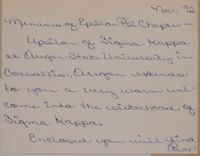 Nov. '72
Members of Epsilon Psi Chapter ~
Upsilon of Sigma Kappa
at Oregon State University in
Corvallis, Oregon extends
to you a very warm wel-
come into the sisterhood of
Sigma Kappa.
Enclosed you will find
(over)